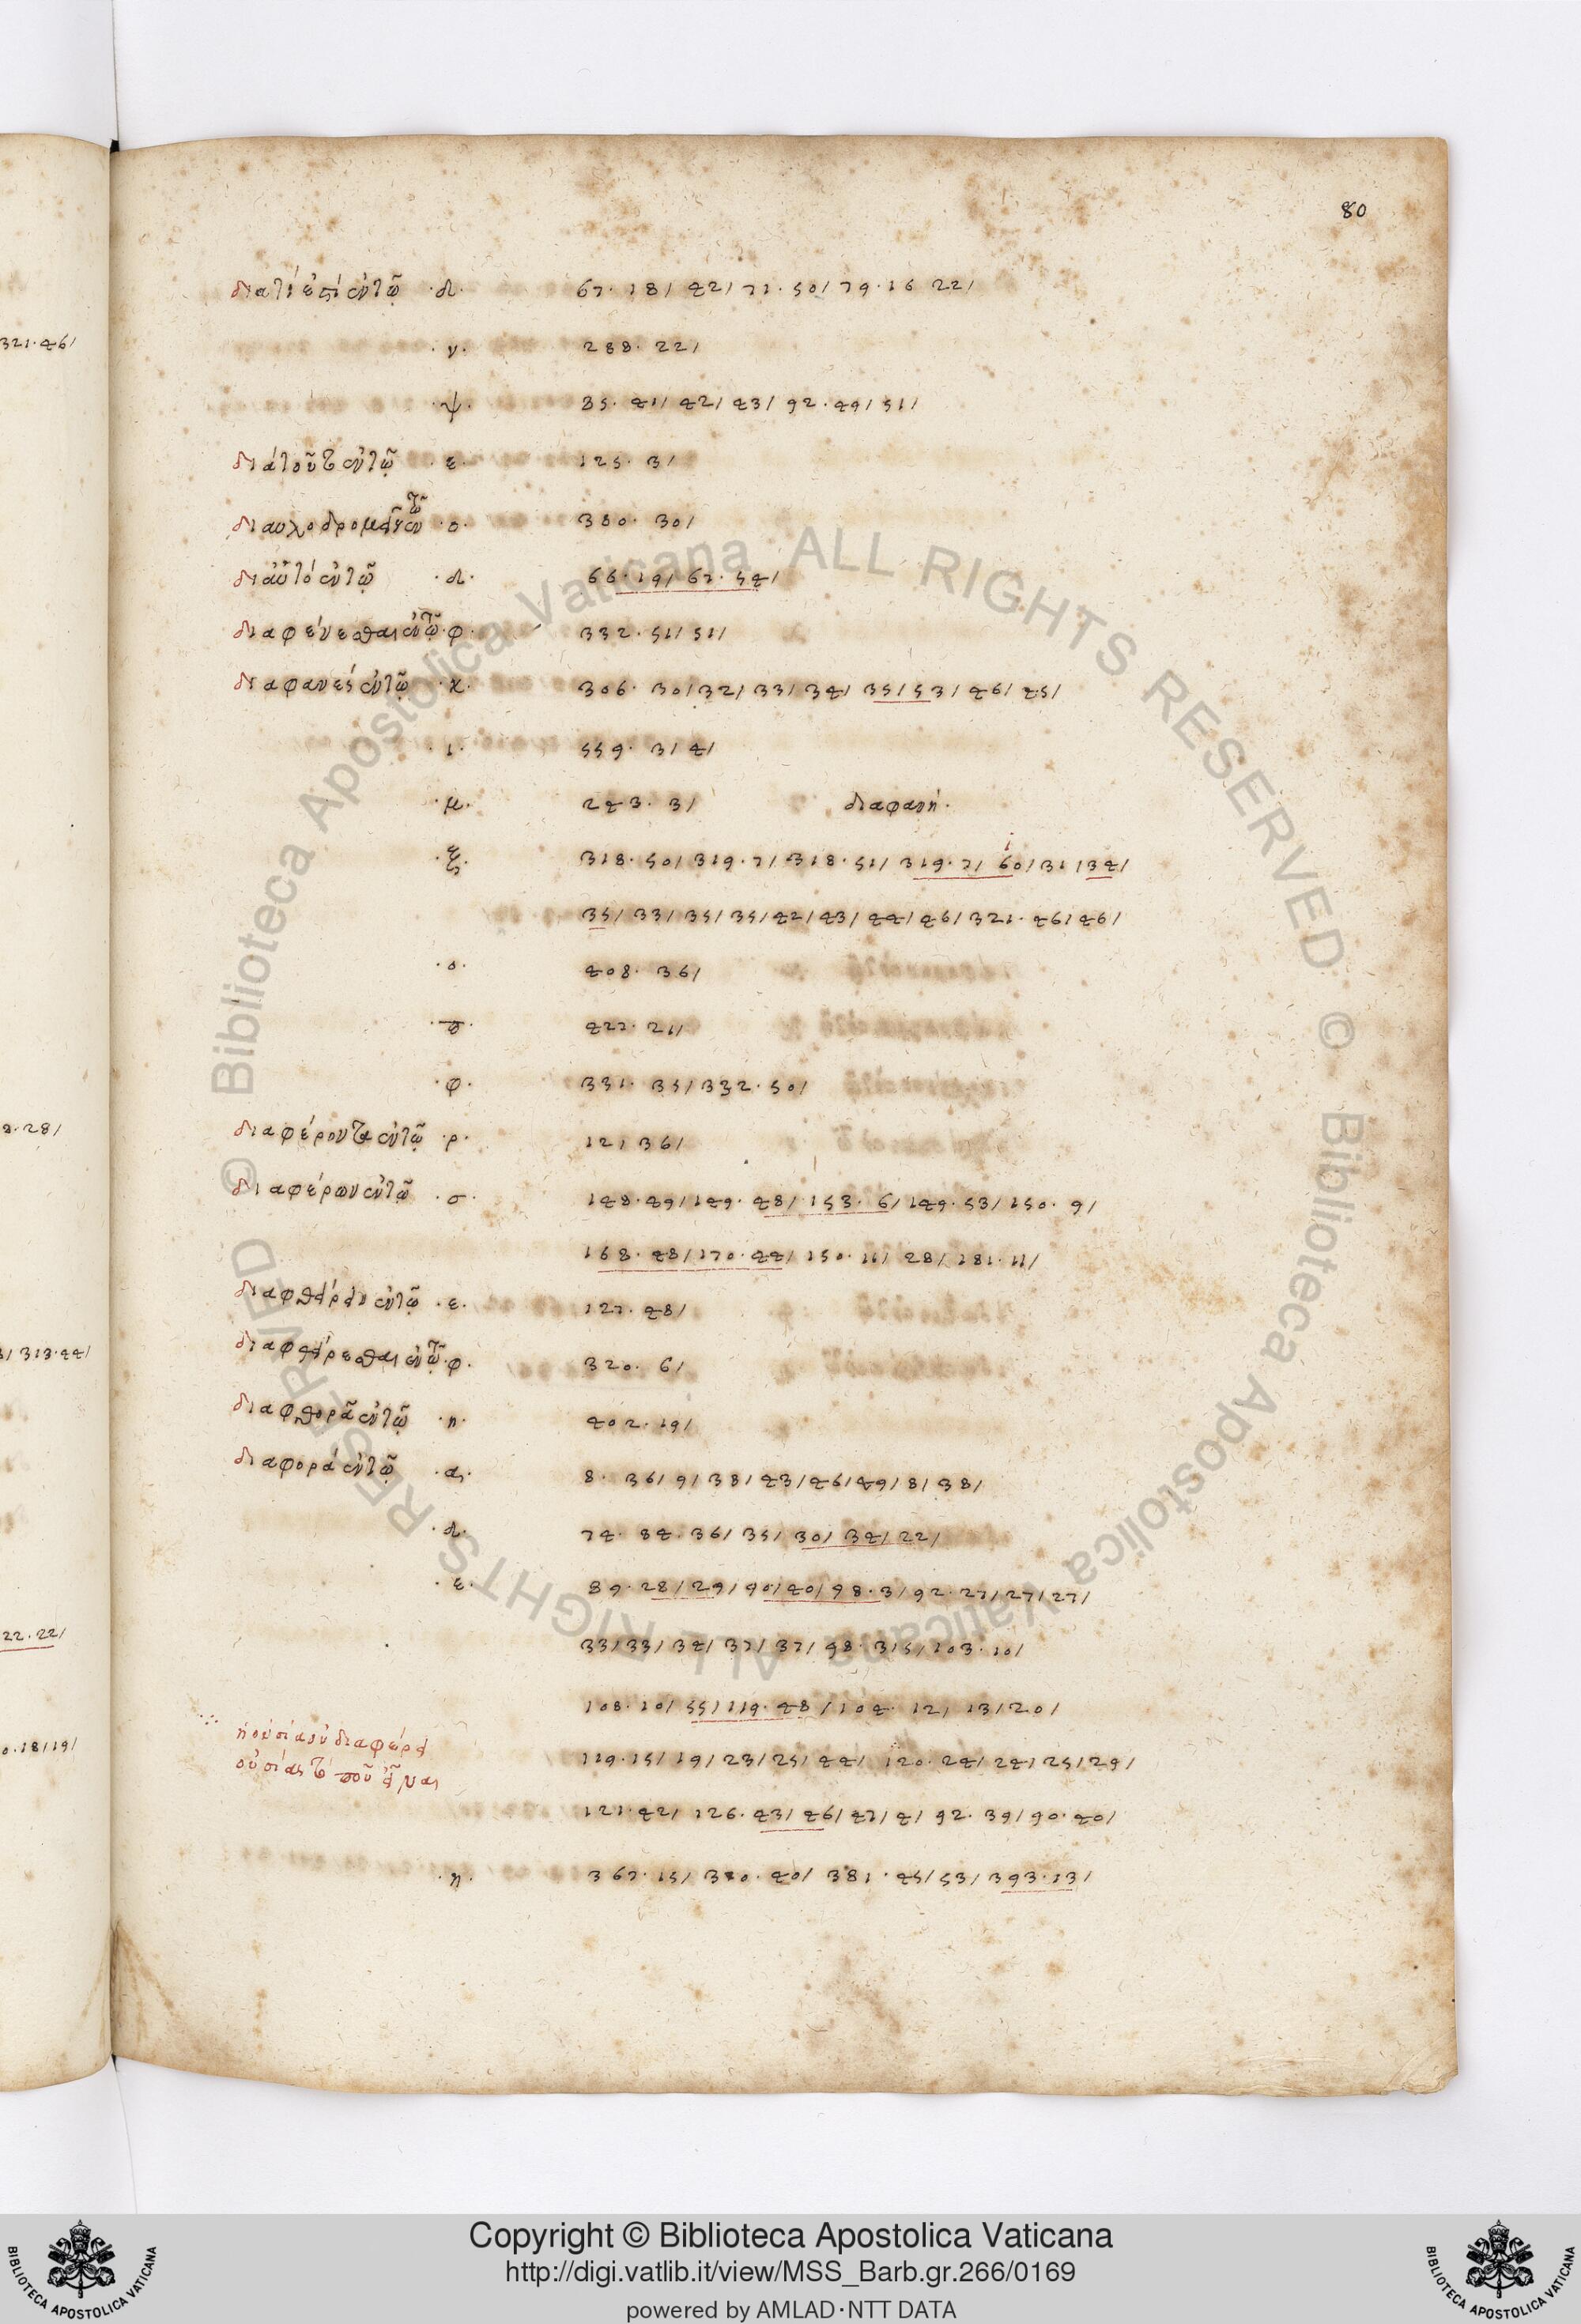 80
διατί ἐπὶ ἐν τῷ ·δ· 67· 18/ 42/ 71· 50/ 79· 16 22/
·ν· 288· 22/
·ψ· 85· 41/ 42/ 43/ 92· 49/ 51/
διὰ τοῦτο ἐν τῷ ·ε· 125· 3/
διαυλοδρομεῖν ἐν τῷ ·ο· 380· 30/
δι αὐτό ἐν τῷ ·δ· 66· 19/ 67· 54/
διαφαίνεσθαι ἐν τῷ ·φ· 332· 51/ 51/
διαφανές ἐν τῷ ·κ· 306· 30/ 32/ 33/ 34/ 35/ 53/ 46/ 45/
·ι· 559· 3/ 4/
·μ· 243· 3/ διαφανῆ·
·ξ· 318· 50/ 319· 7/ 318· 51/ 319· 7/ 60/ 31/ 34/
35/ 33/ 35/ 35/ 42/ 43/ 44/ 46/ 321· 46/ 46/
·ο· 408· 36/
422· 21/
·φ· 331· 35/ 332· 50/
διαφέροντα ἐν τῷ ·ρ· 121 36/
διαφέρων ἐν τῷ ·σ· 148· 49/ 149· 48/ 153· 6/ 149· 53/ 150· 9/
168· 48/ 170· 44/ 150· 11/ 28/ 181· 11/
διαφθείρειν ἐν τῷ ·ε· 127· 48/
διαφθείρεσθαι ἐν τῷ ·φ· 320· 6/
διαφθορᾶ ἐν τῷ ·η· 402· 19/
διαφορά ἐν τῷ ·α· 8· 36/ 9/ 38/ 43/ 46/ 49/ 8/ 38/
·δ· 74· 84· 36/ 35/ 30/ 34/ 22/
·ε· 89· 28/ 29/ 90/ 40/ 98· 3/ 92· 27/ 27/ 27/
33/ 33/ 34/ 37/ 37/ 98· 3/ 5/ 103· 10/
108· 10/ 55/ 119· 48/ 104· 12/ 13/ 20/
ἡ οὐσία οὐ διαφέρει
οὐσίας τῷ ποῦ εἶναι
119· 15/ 19/ 23/ 25/ 44/ 120· 24/ 24/ 25/ 29/
121· 42/ 126· 43/ 46/ 47/ 4/ 92· 39/ 90· 40/
·η· 367· 15/ 370· 40/ 381· 45/ 53/ 393· 13/
321·46/
8·28/
313·44/
22·22/
0·18/19/
© Biblioteca Apostolica Vaticana ALL RIGHTS RESERVED © Biblioteca Apostolica Vaticana ALL RIGHTS RESERVED
Copyright © Biblioteca Apostolica Vaticana
http://digi.vatlib.it/view/MSS_Barb.gr.266/0169
powered by AMLAD·NTT DATA
BIBLIOTECA APOSTOLICA VATICANA
BIBLIOTECA APOSTOLICA VATICANA